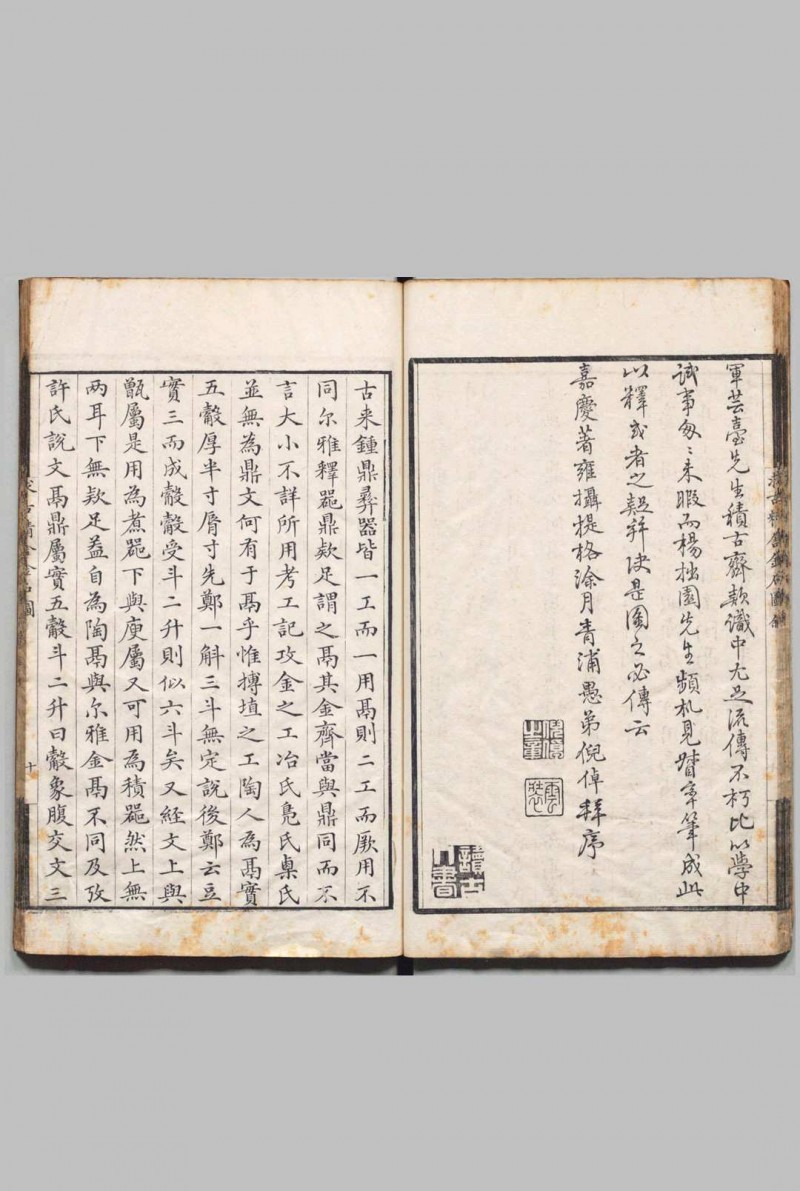 軍芸臺先生積古齋款識中尤足流傳不朽比以學中
試事匆〻未暇而楊拙園先生頻札見督率筆成此
以釋或者之疑并決是圖之必傳云
嘉慶著雍攝提格涂月青浦愚弟倪倬拜序
讀古
山書
古来鍾鼎彞器皆一工而一用鬲則二工而厥用不
同尔雅釋噐鼎款足謂之鬲其金齊當與鼎同而不
言大小不詳所用考工記攻金之工冶氏鳧氏㮚氏
並無為鼎文何有于鬲乎惟摶埴之工陶人為鬲實
五觳厚半寸脣寸先鄭一斛三斗無定說後鄭云豆
實三而成觳觳受斗二升則似六斗矣又經文上與
甑屬是用為煮噐下與庾屬又可用為積噐然上無
两耳下無款足益自為陶鬲與尔雅金鬲不同及攷
許氏說文鬲鼎屬實五觳斗二升曰觳象腹交文三
十